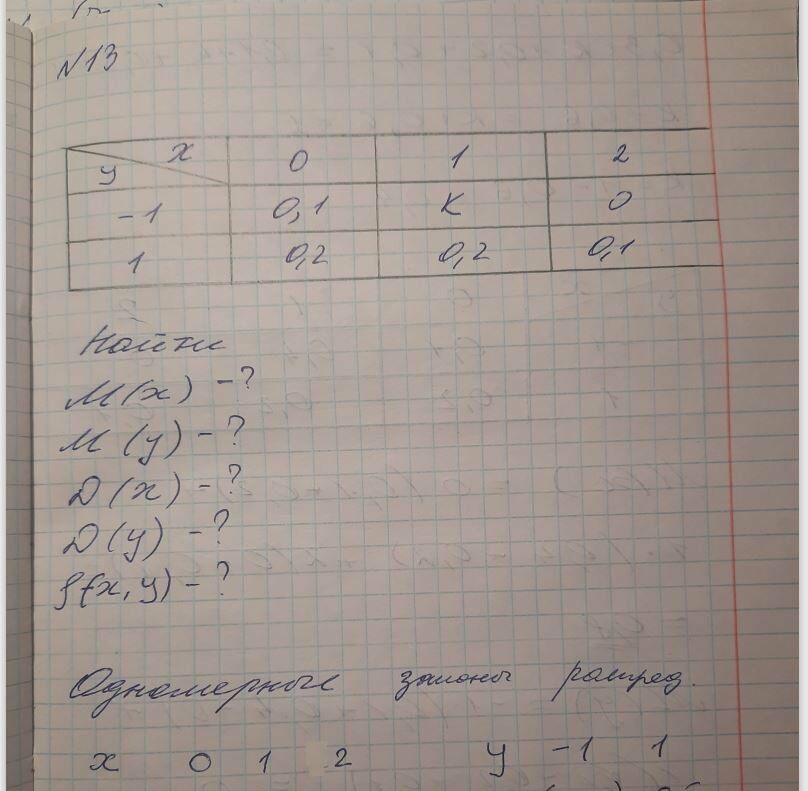 N13
x 0 1 2
y
-1 0,1 K 0
1 0,2 0,2 0,1
Найти
M(x) - ?
M(y) - ?
D(x) - ?
D(y) - ?
ρ(x,y) - ?
Одномерные законы распред.
x 0 1 2 y -1 1